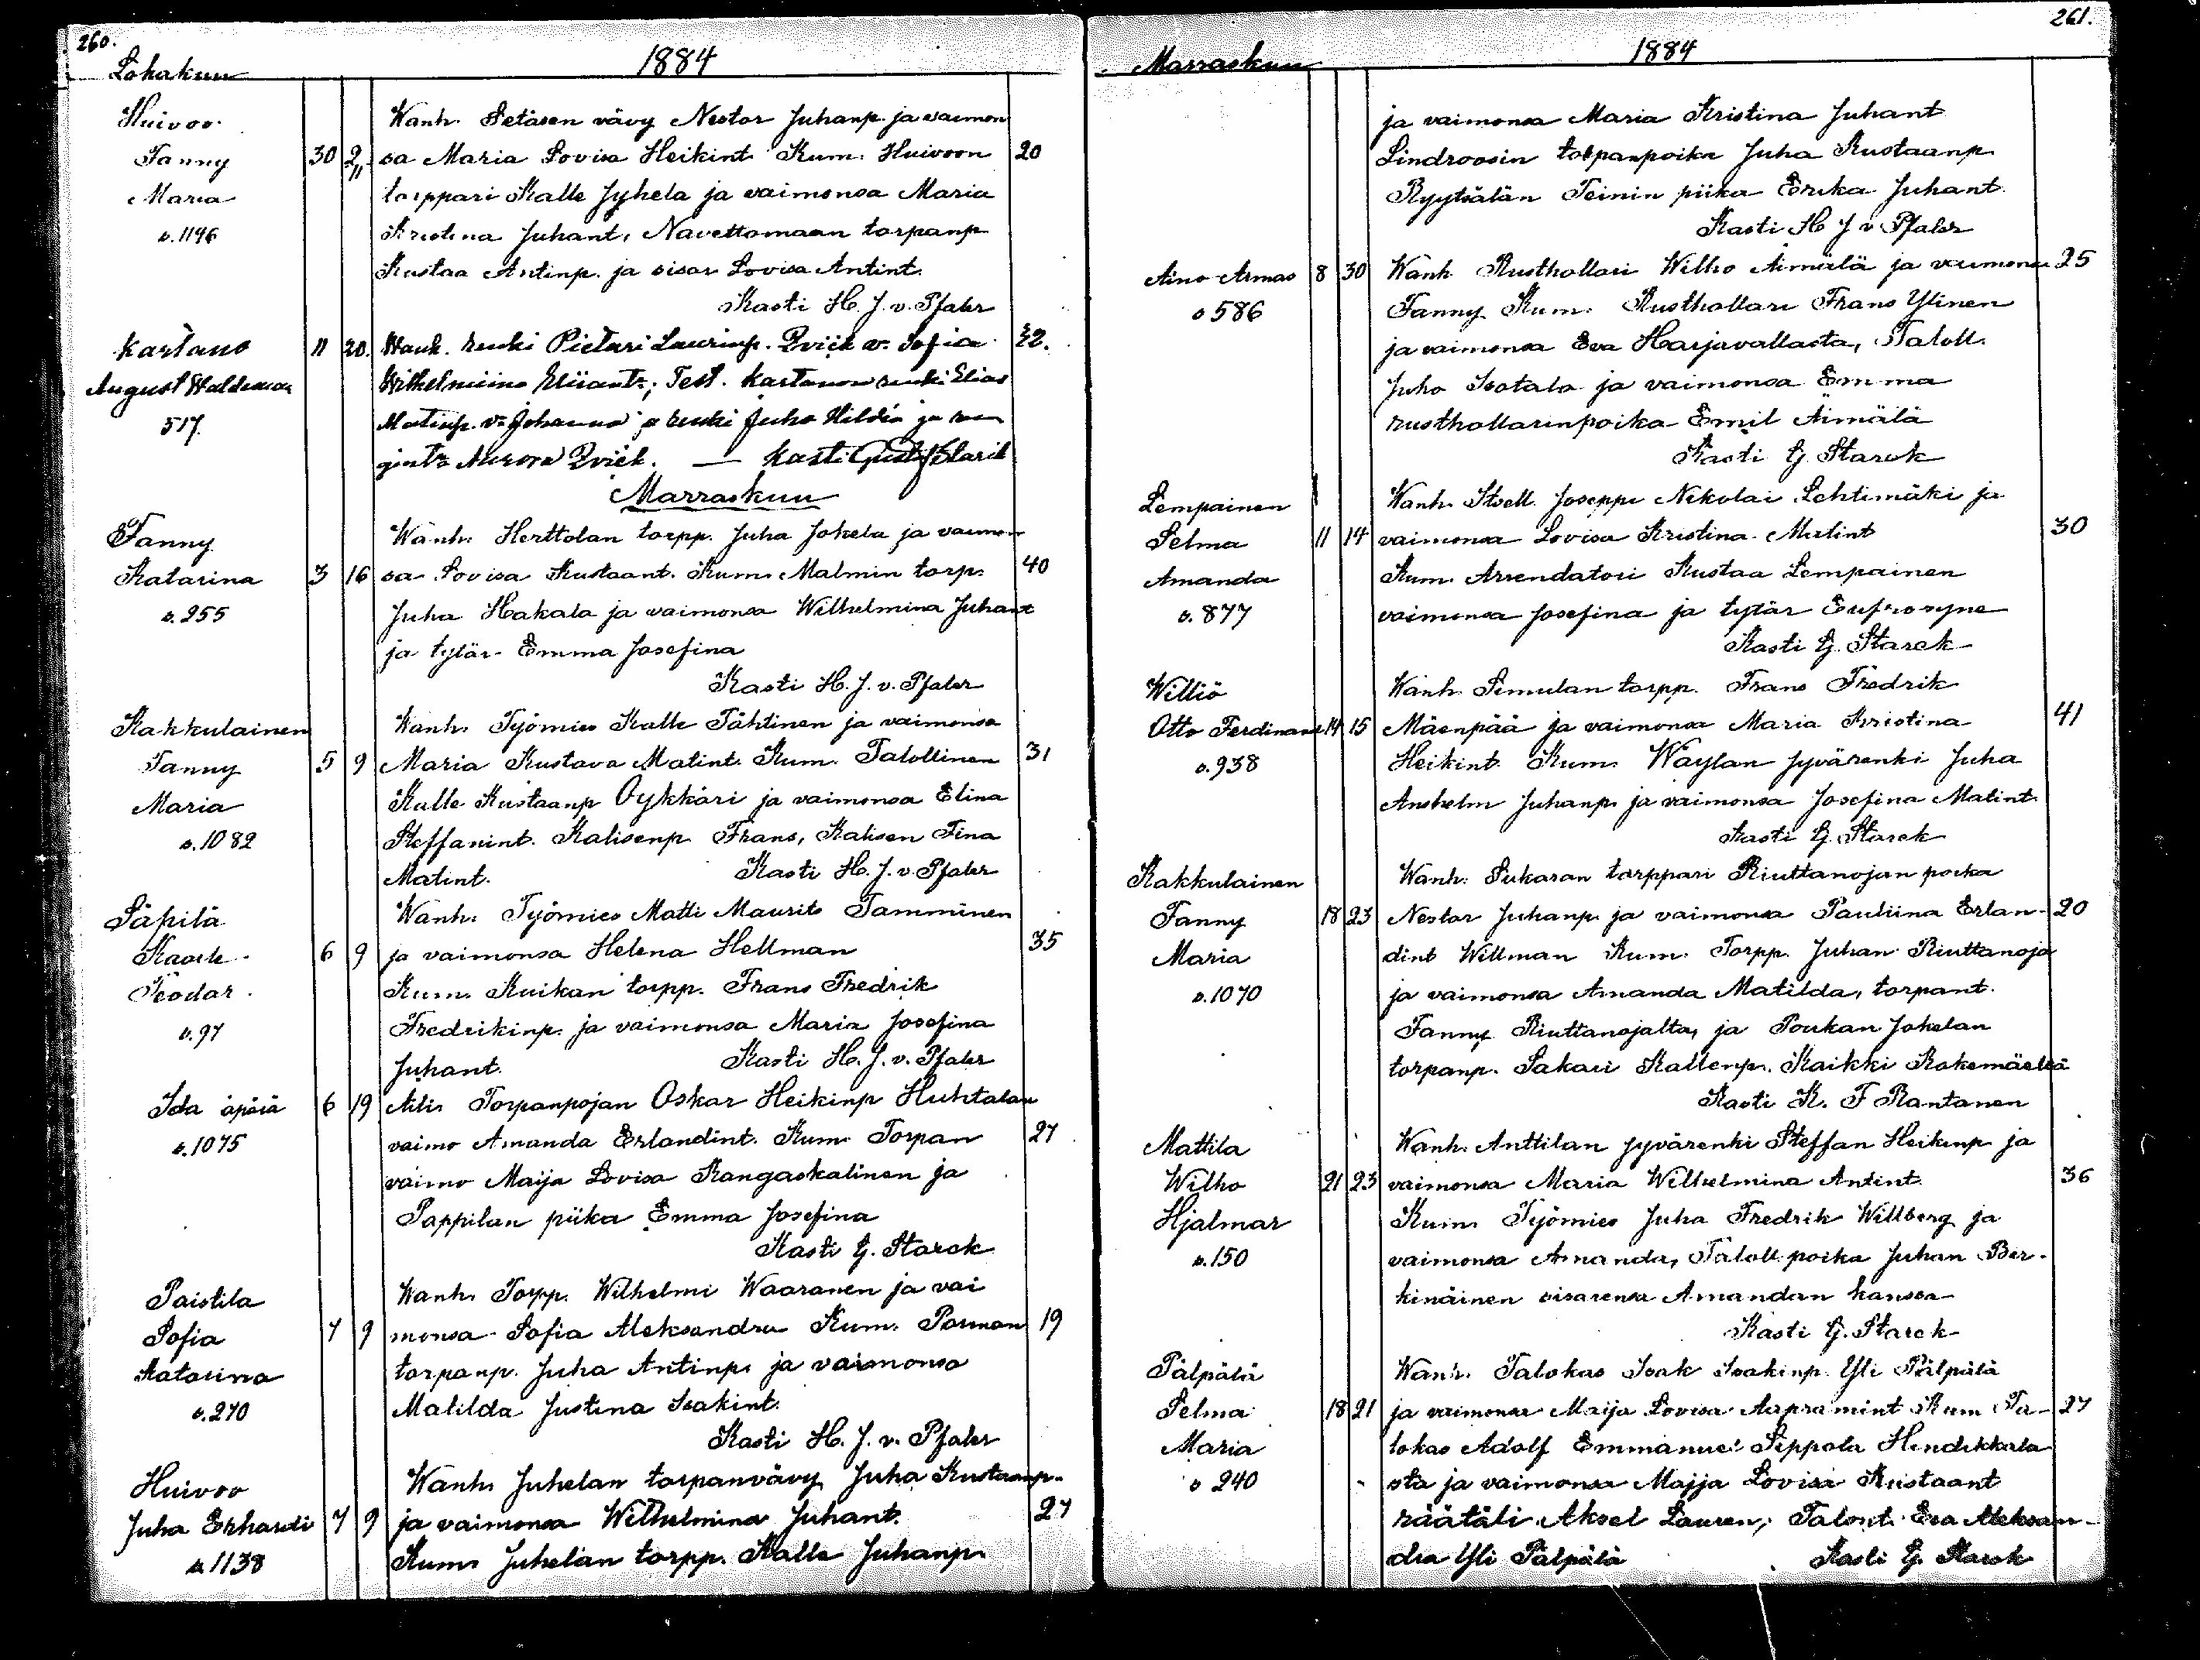 260.
Lokakuu
1884
Huivoo
Fanny
Maria
s. 1196
30 2/11
Wanh. Setäsen vävy Nestor Juhanp. ja vaimon
sa Maria Lovisa Heikint. Kum. Huivoon 20
torppari Kalle Jyhela ja vaimonsa Maria
Kristina Juhant, Navettomaan torpanp
Kustaa Antinp. ja sisar Lovisa Antint.
Kasti H. J. v. Pfaler
Kartano
August Waldemar
517.
11 20.
Wanh. renki Pietari Laurinp. Qvick v. Sofia 32.
Wilhelmiina Eliiant.; Test. Kartanon renki Elias
Matinp. v. Johanna ja renki Juho Hildén ja ren
gint. Aurora Qvick. — Kasti Gustaf Starck
Marraskuu
Fanny
Katarina
s. 255
3 16
Wanh. Herttolan torpp. Juha Jokela ja vaimon
sa Lovisa Kustaant. Kum. Malmin torp. 40
Juha Hakala ja vaimonsa Wilhelmina Juhant
ja tytär Emma Josefina
Kasti H. J. v. Pfaler
Kakkulainen
Fanny
Maria
s. 1082
5 9
Wanh. Työmies Kalle Tähtinen ja vaimonsa
Maria Kustava Matint. Kum. Talollinen 31
Kalle Kustaanp Öykkäri ja vaimonsa Elina
Steffanint. Kalisenp Frans, Kalisen Fina
Matint. Kasti H. J. v. Pfaler
Säpilä
Kaarle
Teodor
s. 97
6 9
Wanh. Työmies Matti Maurits Tamminen
ja vaimonsa Helena Hellman 35
Kum. Kuikan torpp. Frans Fredrik
Fredrikinp. ja vaimonsa Maria Josefina
Juhant. Kasti H. J. v. Pfaler
Ida äpärä
s. 1075
6 19
Äiti Torpanpojan Oskar Heikinp Huhtalan
vaimo Amanda Erlandint. Kum. Torpan 27
vaimo Maija Lovisa Kangaskalinen ja
Pappilan piika Emma Josefina
Kasti G. Starck
Paistila
Sofia
Katarina
s. 270
7 9
Wanh. Torpp. Wilhelmi Waaranen ja vai
monsa Sofia Aleksandra Kum. Porman 19
torpanp. Juha Antinp. ja vaimonsa
Matilda Justina Isakint.
Kasti H. J. v. Pfaler
Huivoo
Juha Erhardi
s. 1138
7 9
Wanh. Juhelan torpanvävy Juha Kustaanp.
ja vaimonsa Wilhelmina Juhant. 27
Kum. Juhelan torpp. Kalle Juhanp.
261.
Marraskuu
1884
ja vaimonsa Maria Kristina Juhant
Lindroosin torpanpoika Juha Kustaanp
Ryytsälän Teinin piika Erika Juhant.
Kasti H J v. Pfaler
Aino Armas
s 586
8 30
Wanh Rusthollari Wilho Äimälä ja vaimonsa 25
Fanny Kum. Rusthollari Frans Ylinen
ja vaimonsa Eva Harjavallasta, Taloll.
Juho Isotalo ja vaimonsa Emma
rusthollarinpoika Emil Äimälä
Kasti G. Starck
Lempainen
Selma
Amanda
s. 877
11 14
Wanh. Itsell. Joseppi Nikolai Lehtimäki ja
vaimonsa Lovisa Kristina Matint 30
Kum. Arrendatori Kustaa Lempainen
vaimonsa Josefina ja tytär Eufrosyne
Kasti G. Starck
Williö
Otto Ferdinand
s. 938
14 15
Wanh. Simulan torpp. Frans Fredrik
Mäenpää ja vaimonsa Maria Kristina 41
Heikint. Kum. Wäylän jyvärenki Juha
Anshelm Juhanp. ja vaimonsa Josefina Matint.
Kasti G. Starck
Kakkulainen
Fanny
Maria
s. 1070
18 23
Wanh. Sukaran torppari Riuttanojan poika
Nestor Juhanp. ja vaimonsa Pauliina Erlan- 20
dint Willman Kum. Torpp. Juhan Riuttanoja
ja vaimonsa Amanda Matilda, torpant.
Fanny Riuttanojalta, ja Poukan Jokelan
torpanp. Sakari Kallenp. Kaikki Kokemäeltä
Kasti K. F Rantanen
Mattila
Wilho
Hjalmar
s. 150
21 23
Wanh. Anttilan jyvärenki Steffan Heikinp ja
vaimonsa Maria Wilhelmina Antint. 36
Kum. Työmies Juha Fredrik Willberg ja
vaimonsa Amanda, Taloll. poika Juhan Ber-
kinäinen sisarensa Amandan kanssa
Kasti G. Starck
Pälpälä
Selma
Maria
s 240
18 21
Wanh. Talokas Isak Isakinp. Yli Pälpälä
ja vaimonsa Maija Lovisa Aapramint Kum Ta- 27
lokas Adolf Emmanuel Seppola Hindikkala
sta ja vaimonsa Majja Lovisa Kustaant
räätäli Aksel Lauren, Talont. Eva Aleksan-
dra Yli Pälpälä Kasti G. Starck